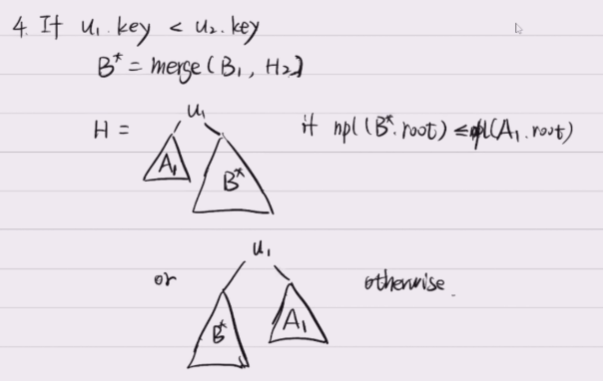 4. If u₁.key < u₂.key
B* = merge(B₁, H₂)
H =
u₁
if npl(B*.root) ≤ npl(A₁.root)
A₁
B*
u₁
or
otherwise.
B*
A₁